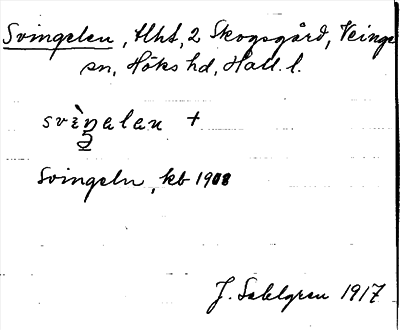 Svingelen, tlht, 2 Skogsgård, Veinge
sn, Höks hd, Hall. l.
svìŋalan +
Svingeln, kb 1908
J. Sahlgren 1917